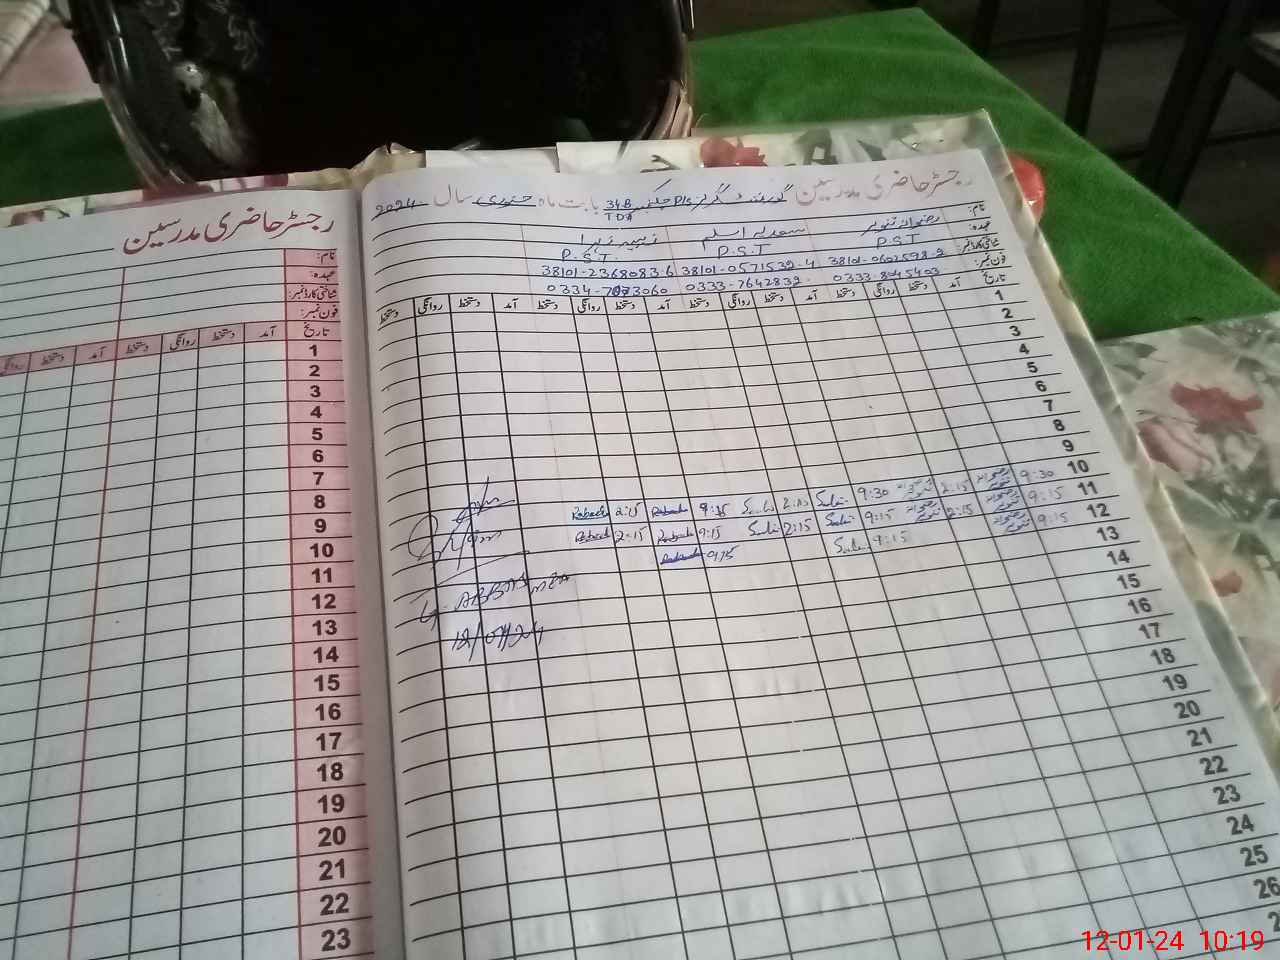 رجسٹر حاضری مدرسین گورنمنٹ گرلز P/S چک نمبر 34B TDA بابت ماہ جنوری سال 2024
نام: رضوانہ تنویر سعدیہ اسلم زبیبہ زہرا
عہدہ: P.S.T P.S.T P.S.T.
شناختی کارڈ نمبر: 38101-0602598-2 38101-0571532-4 38101-2368083-6
فون نمبر: 0333-8045403 0333-7642832 0334-7073060
تاریخ آمد دستخط روانگی دستخط آمد دستخط روانگی دستخط آمد دستخط روانگی دستخط
1
2
3
4
5
6
7
8
9
10 9:30 رضوانہ تنویر 2:15 رضوانہ تنویر 9:30 Sadi 2:15 Sadi 9:15 Rabab 2:15 Rabab
11 9:15 رضوانہ تنویر 2:15 رضوانہ تنویر 9:15 Sadi 2:15 Sadi 9:15 Rabab 2:15 Rabab
12 9:15 9:15 Sadi 9:15
13
14
15
16
17
18
19
20
21
22
23
24
25
26
G. ABBAS MEA
12/01/24
رجسٹر حاضری مدرسین
نام:
عہدہ:
شناختی کارڈ نمبر:
فون نمبر:
تاریخ آمد دستخط روانگی دستخط آمد دستخط روانگی
1
2
3
4
5
6
7
8
9
10
11
12
13
14
15
16
17
18
19
20
21
22
23
12-01-24 10:19